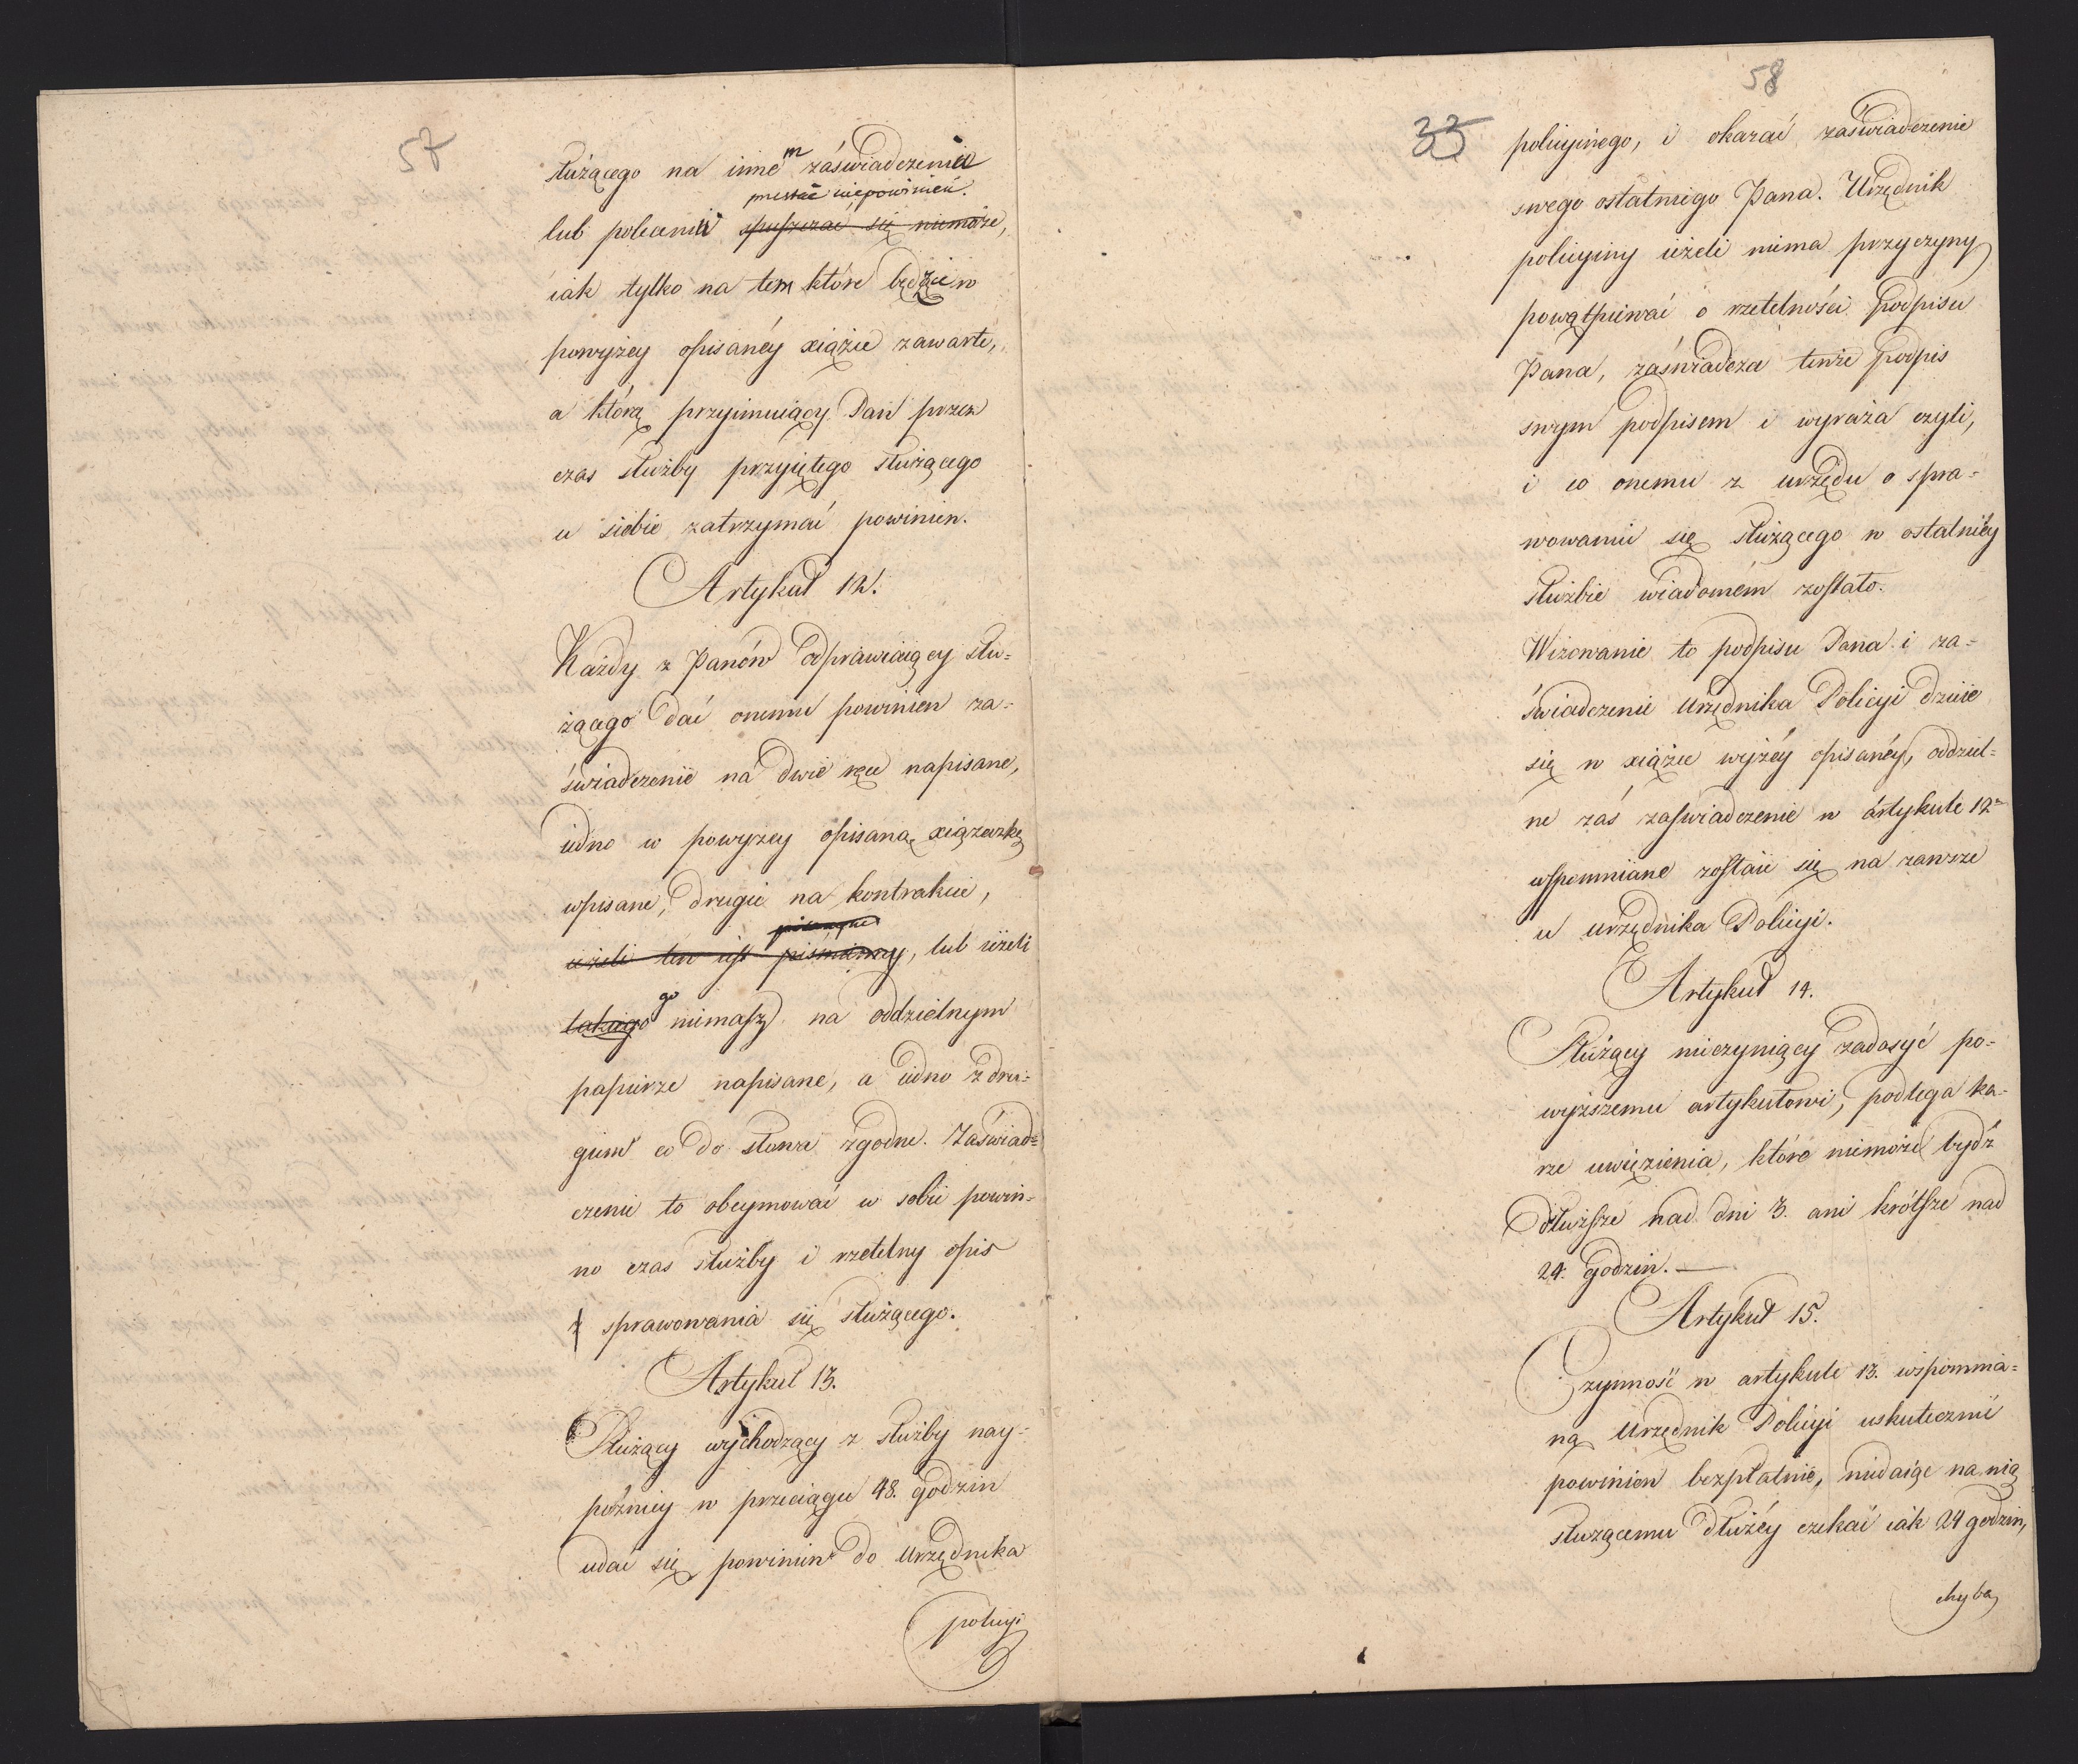 57
służącego na inném zaświadczeniu
przestać niepowinien.
lub poleceniu spuszczać się niemoże,
iak tylko na tem które będzie w
powyżey opisanéy xiążce zawarte,
a którą przyimuiący Pan przez
czas służby przyiętego służącego
u siebie zatrzymać powinien.
Artykuł 12.
Każdy z Panów odprawiaiący słu-
żącego dać onemu powinien za-
świadczenie na dwie ręce napisane,
iedno w powyżey opisaną xiążeczkę
wpisane, drugie na kontrakcie,
ieżeli ten iest piśmienny, lub ieżeli
takiego go niemasz na oddzielnym
papierze napisane, a iedno z dru-
giem co do słowa zgodne. Zaświad-
czenie to obeymować w sobie powin-
no czas służby i rzetelny opis
sprawowania się służącego.
Artykuł 13.
Służący wychodzący z służby nay-
późniey w przeciągu 48. godzin
udać się powinien do Urzędnika
policyi
58
33
policyinego, i okazać zaświadczenie
swego ostatniego Pana. Urzędnik
policyiny ieżeli niema przyczyny
powątpiewać o rzetelności podpisu
Pana, zaświadcza tenże podpis
swym podpisem i wyraża czyli,
i co onemu z urzędu o spra-
wowaniu się służącego w ostatniéy
służbie wiadomém zostało.
Wizowanie to podpisu Pana i za-
świadczenie Urzędnika Policyi dzieie
się w xiążce wyżéy opisanéy, oddziel-
ne zaś zaświadczenie w artykule 12
wspomniane zostaie się na zawsze
u urzędnika Policyi.
Artykuł 14.
Służący nieczyniący zadosyć po-
wyższemu artykułowi, podlega ka-
rze uwięzienia, które niemoże bydź
dłuższe nad dni 3. ani krótsze nad
24. godzin. —
Artykuł 15.
Czynność w artykule 13. wspomnia-
ną Urzędnik Policyi uskutecznić
powinien bezpłatnie, niedaiąc na nią
służącemu dłużéy czekać iak 24 godzin,
chyba